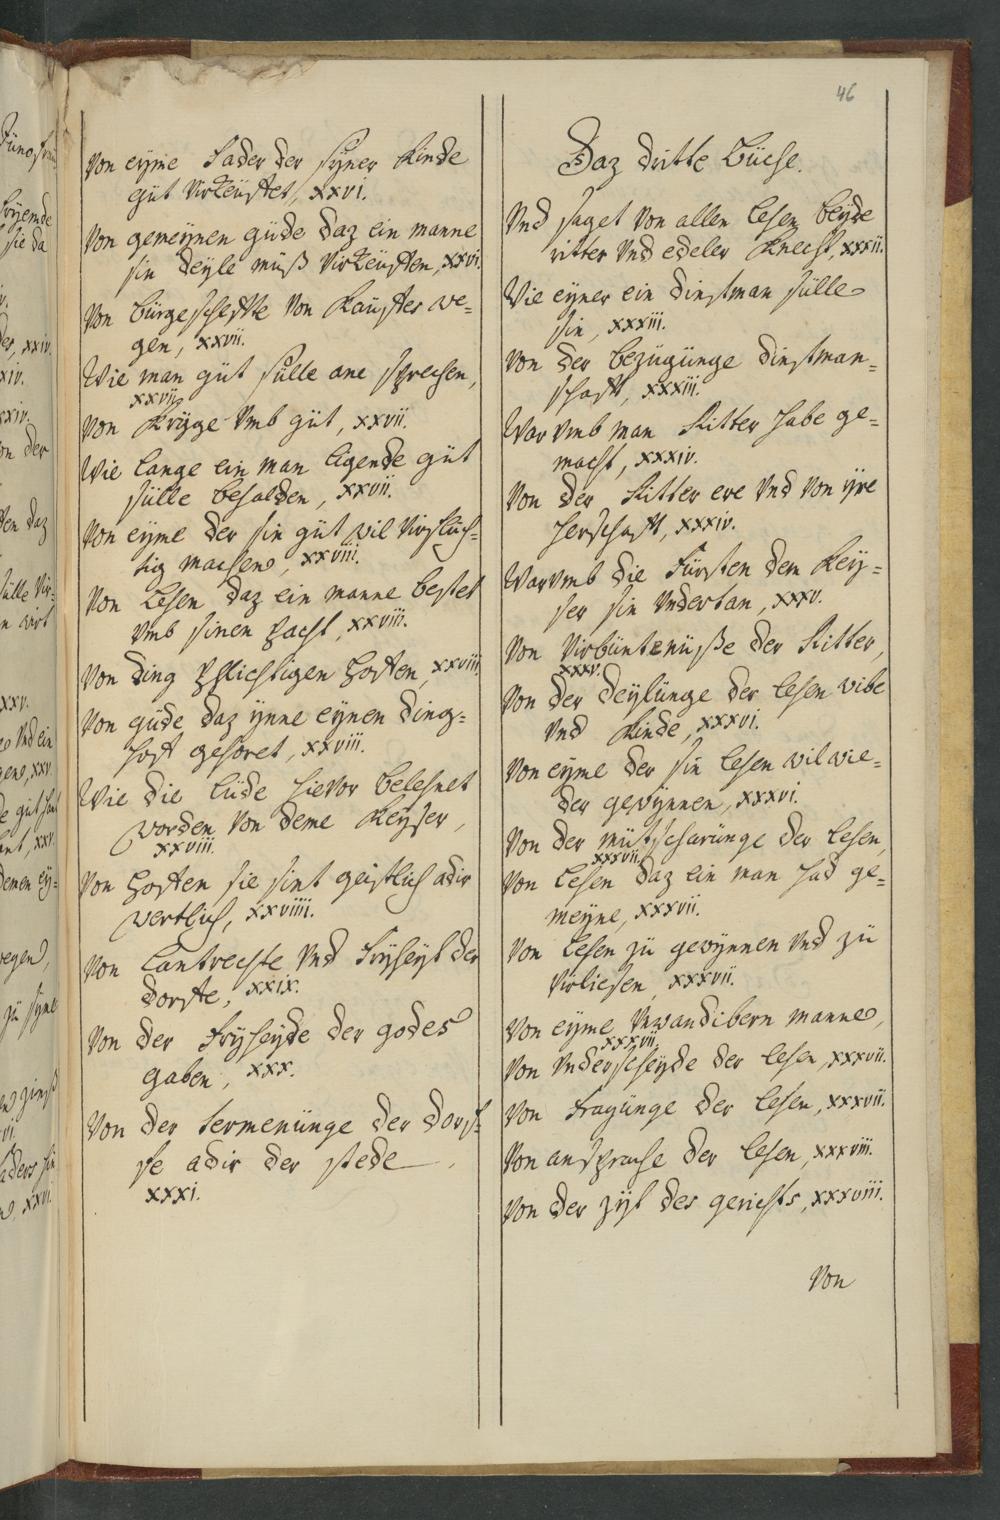 46
Von eyme Vader der syner Kinde
gut virkeuffet, XXVI.
Von gemeynen gude daz ein manne
sin deyle muß virkeuffen, XXVI.
Von bürgeschefte von Kauffes we=
gen, XXVII.
Wie man gut sulle ane sprechen,
XXVII.
Von Kryge vmb gut, XXVII.
Wie lange ein man ligende gut
sulle behalden, XXVII.
Von eyme der sin gut wil virfluch=
tig machen, XXVIII.
Von Lehen daz ein manne bestet
vmb sinen pacht, XXVIII.
Von ding pflichtigen Hofen, XXVIII.
Von gude daz ynne eynen ding=
hoff gehoret, XXVIII.
Wie die Lude hievor belehnet
worden von deme Keyser,
XXVIII.
Von Hofen sie sint geistlich adir
wertlich, XXVIIII.
Von Lantrechte vnd Fryheyt der
dorffe, XXIX.
Von der Fryheyde der godes
gaben, XXX.
Von der termenunge der dorf=
fe adir der stede.
XXXI.
Daz dritte Buche.
Vnd saget von allen lehen beyde
ritter vnd edeler Knecht, XXXII.
Wie eyner ein dinstman sulle
sin, XXXIII.
Von der bezugunge dinstman=
schaft, XXXIII.
War vmb man Ritter habe ge=
macht, XXXIV.
Von der Ritter ere vnd von yre
herschaft, XXXIV.
War vmb die Fürsten dem Key=
ser sin vndertan, XXXV.
Von virbuntenuße der Ritter,
XXXV.
Von der deylunge der lehen wibe
vnd Kinde, XXXVI.
Von eyme der sin lehen wil wie=
der gewynnen, XXXVI.
Von der mutscharunge der lehen,
XXXVII.
Von lehen daz ein man had ge=
meyne, XXXVII.
Von lehen zu gewynnen vnd zu
virliesen, XXXVII.
Von eyme vnwandibern manne,
XXXVII.
Von vnderscheyde der lehen, XXXVII.
Von fragunge der lehen, XXXVII.
Von ansprache der lehen, XXXVIII.
Von der zyt des gerichts, XXXVIII.
Von